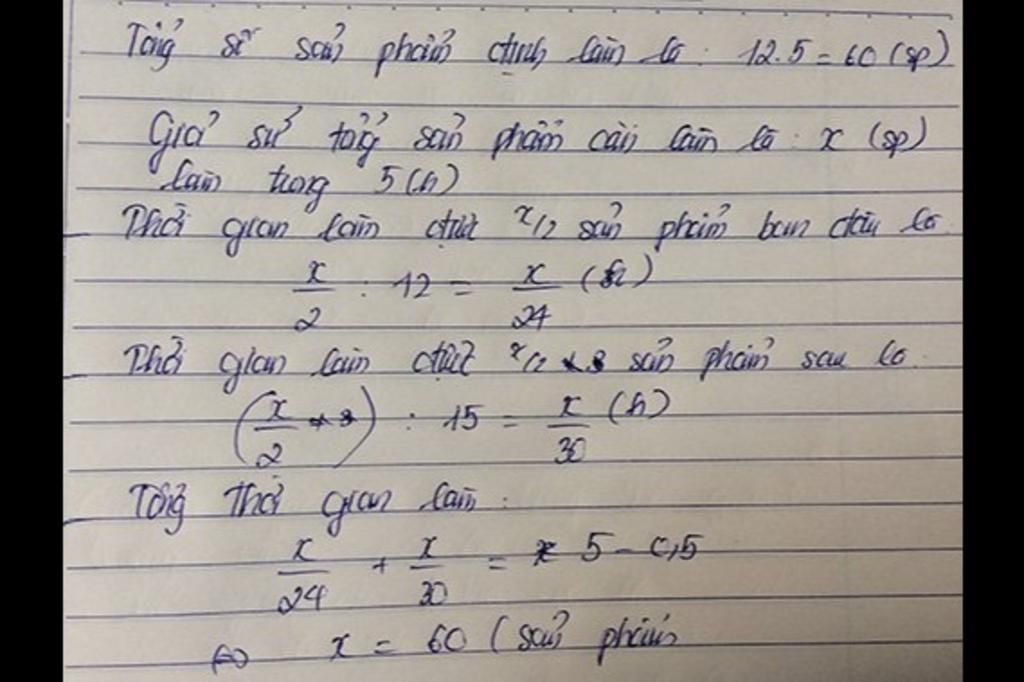 Tổng số sản phẩm định làm là: 12.5 = 60 (sp)
Giả sử tổng sản phẩm cần làm là: x (sp)
làm trong 5(h)
Thời gian làm được x/2 sản phẩm ban đầu là
x/2 : 12 = x/24 (h)
Thời gian làm được x/2 sản phẩm sau là.
(x/2) : 15 = x/30 (h)
Tổng thời gian làm:
x/24 + x/30 = 5 - 0,5
⇔ x = 60 (sản phẩm